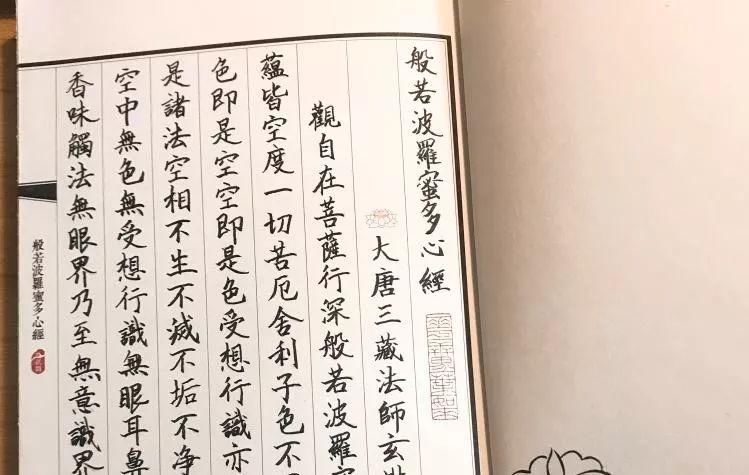 般若波羅蜜多心經
大唐三藏法師玄奘
觀自在菩薩行深般若波羅蜜
蘊皆空度一切苦厄舍利子色不
色即是空空即是色受想行識亦
是諸法空相不生不滅不垢不净
空中無色無受想行識無眼耳鼻
香味觸法無眼界乃至無意識界
般若波羅蜜多心經